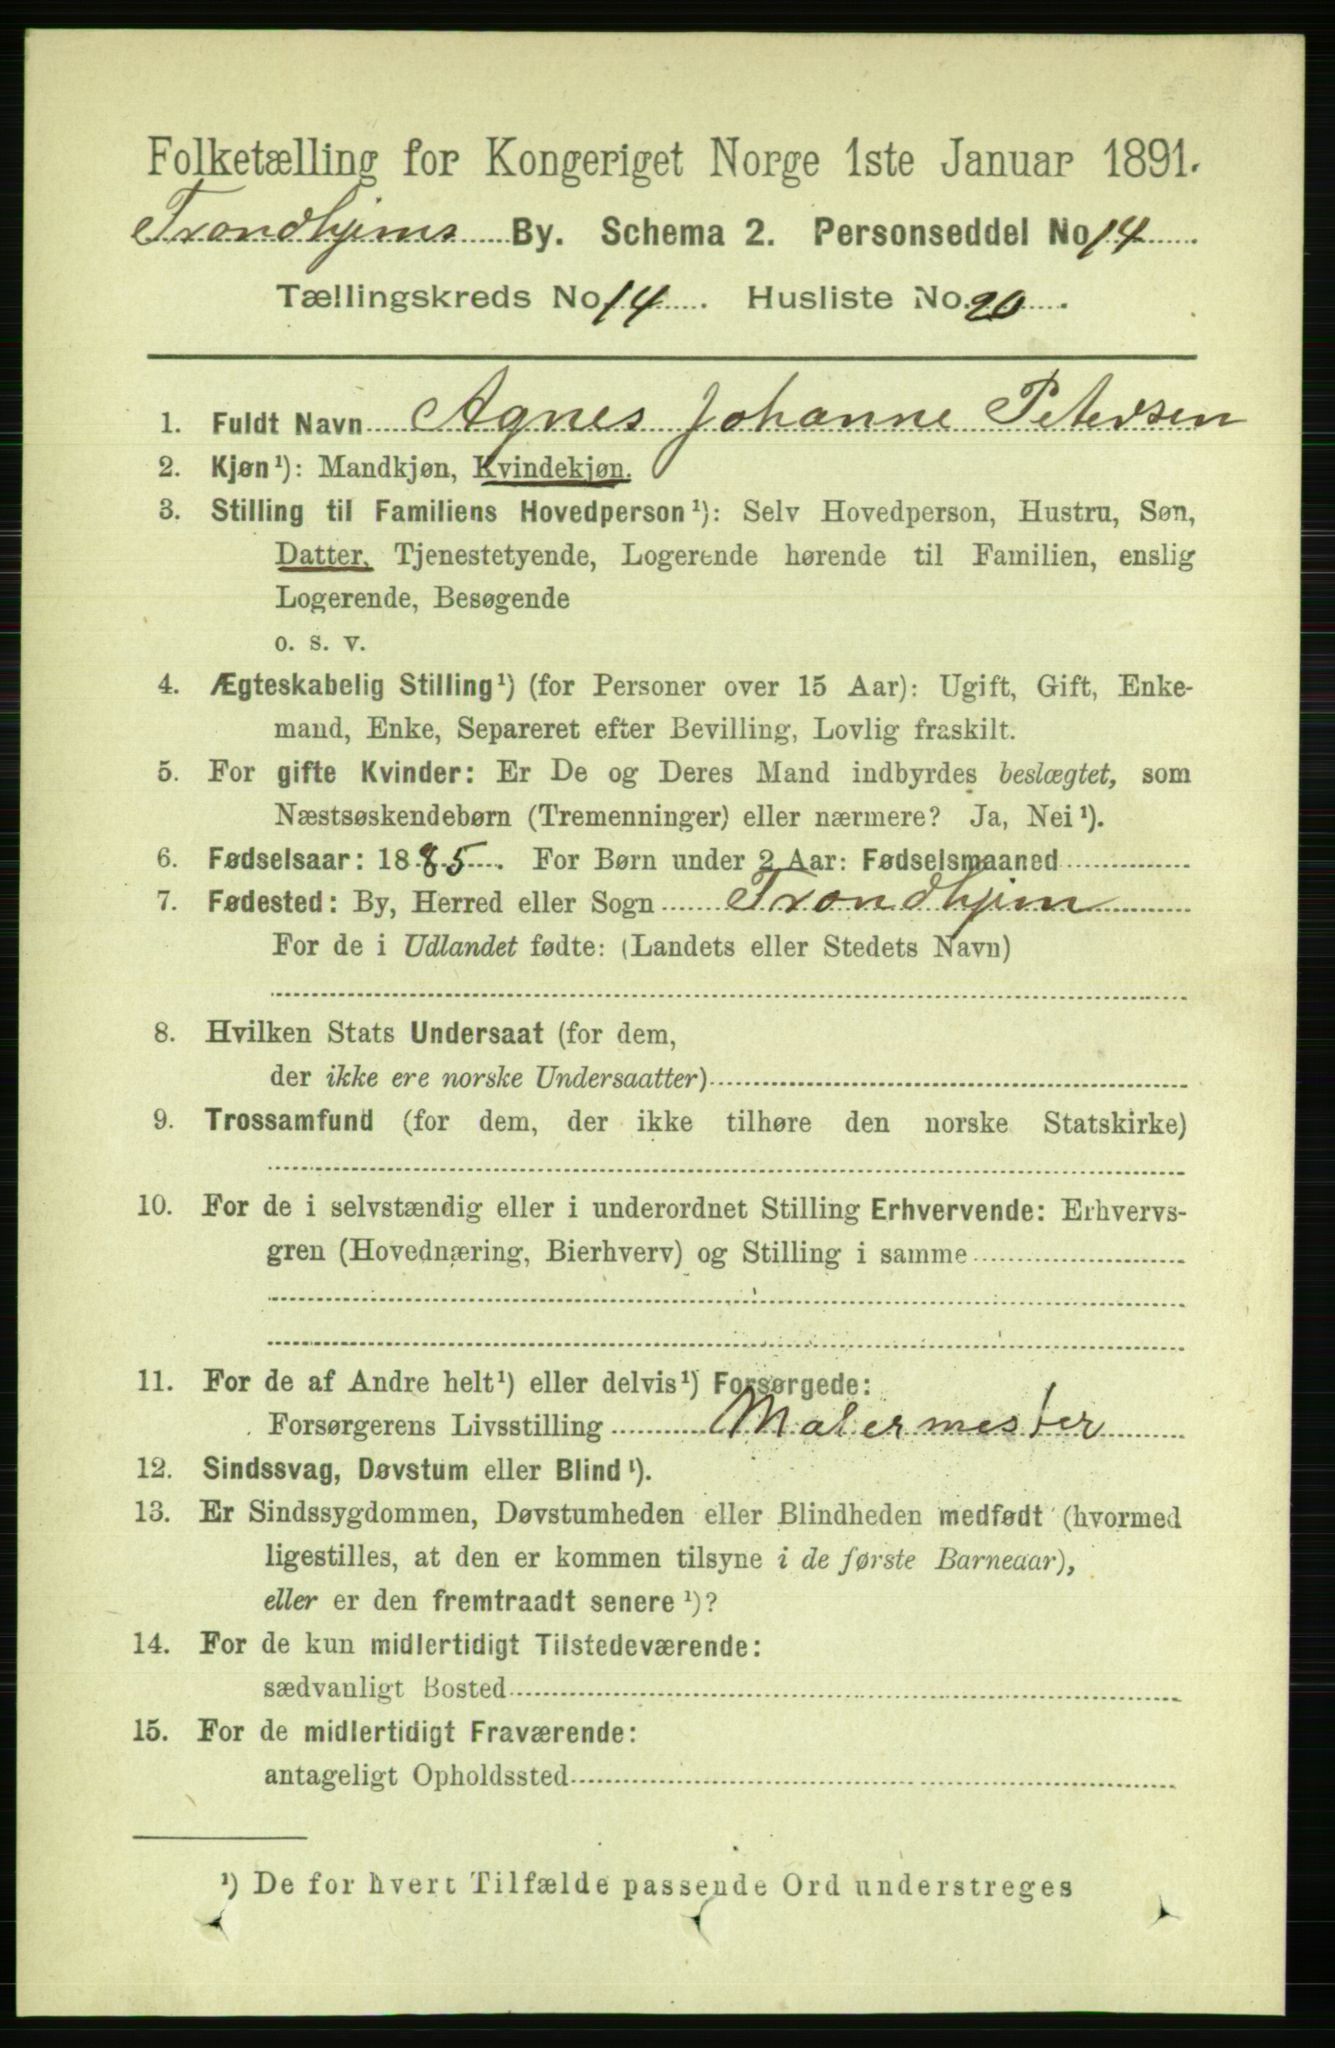 Folketælling for Kongeriget Norge 1ste Januar 1891.
Trondhjems By. Schema 2. Personseddel No 14
Tællingskreds No 14. Husliste No. 20.
1. Fuldt Navn Agnes Johanne Petersen
2. Kjøn¹): Mandkjøn, Kvindekjøn.
3. Stilling til Familiens Hovedperson¹): Selv Hovedperson, Hustru, Søn,
Datter, Tjenestetyende, Logerende hørende til Familien, enslig
Logerende, Besøgende
o. s. v.
4. Ægteskabelig Stilling¹) (for Personer over 15 Aar): Ugift, Gift, Enke-
mand, Enke, Separeret efter Bevilling, Lovlig fraskilt.
5. For gifte Kvinder: Er De og Deres Mand indbyrdes beslægtet, som
Næstsøskendebørn (Tremenninger) eller nærmere? Ja, Nei¹).
6. Fødselsaar: 1885. For Børn under 2 Aar: Fødselsmaaned
7. Fødested: By, Herred eller Sogn Trondhjem
For de i Udlandet fødte: (Landets eller Stedets Navn)
8. Hvilken Stats Undersaat (for dem,
der ikke ere norske Undersaatter)
9. Trossamfund (for dem, der ikke tilhøre den norske Statskirke)
10. For de i selvstændig eller i underordnet Stilling Erhvervende: Erhvervs-
gren (Hovednæring, Bierhverv) og Stilling i samme
11. For de af Andre helt¹) eller delvis¹) Forsørgede:
Forsørgerens Livsstilling Malermester
12. Sindssvag, Døvstum eller Blind¹).
13. Er Sindssygdommen, Døvstumheden eller Blindheden medfødt (hvormed
ligestilles, at den er kommen tilsyne i de første Barneaar),
eller er den fremtraadt senere¹)?
14. For de kun midlertidigt Tilstedeværende:
sædvanligt Bosted
15. For de midlertidigt Fraværende:
antageligt Opholdssted
¹) De for hvert Tilfælde passende Ord understreges